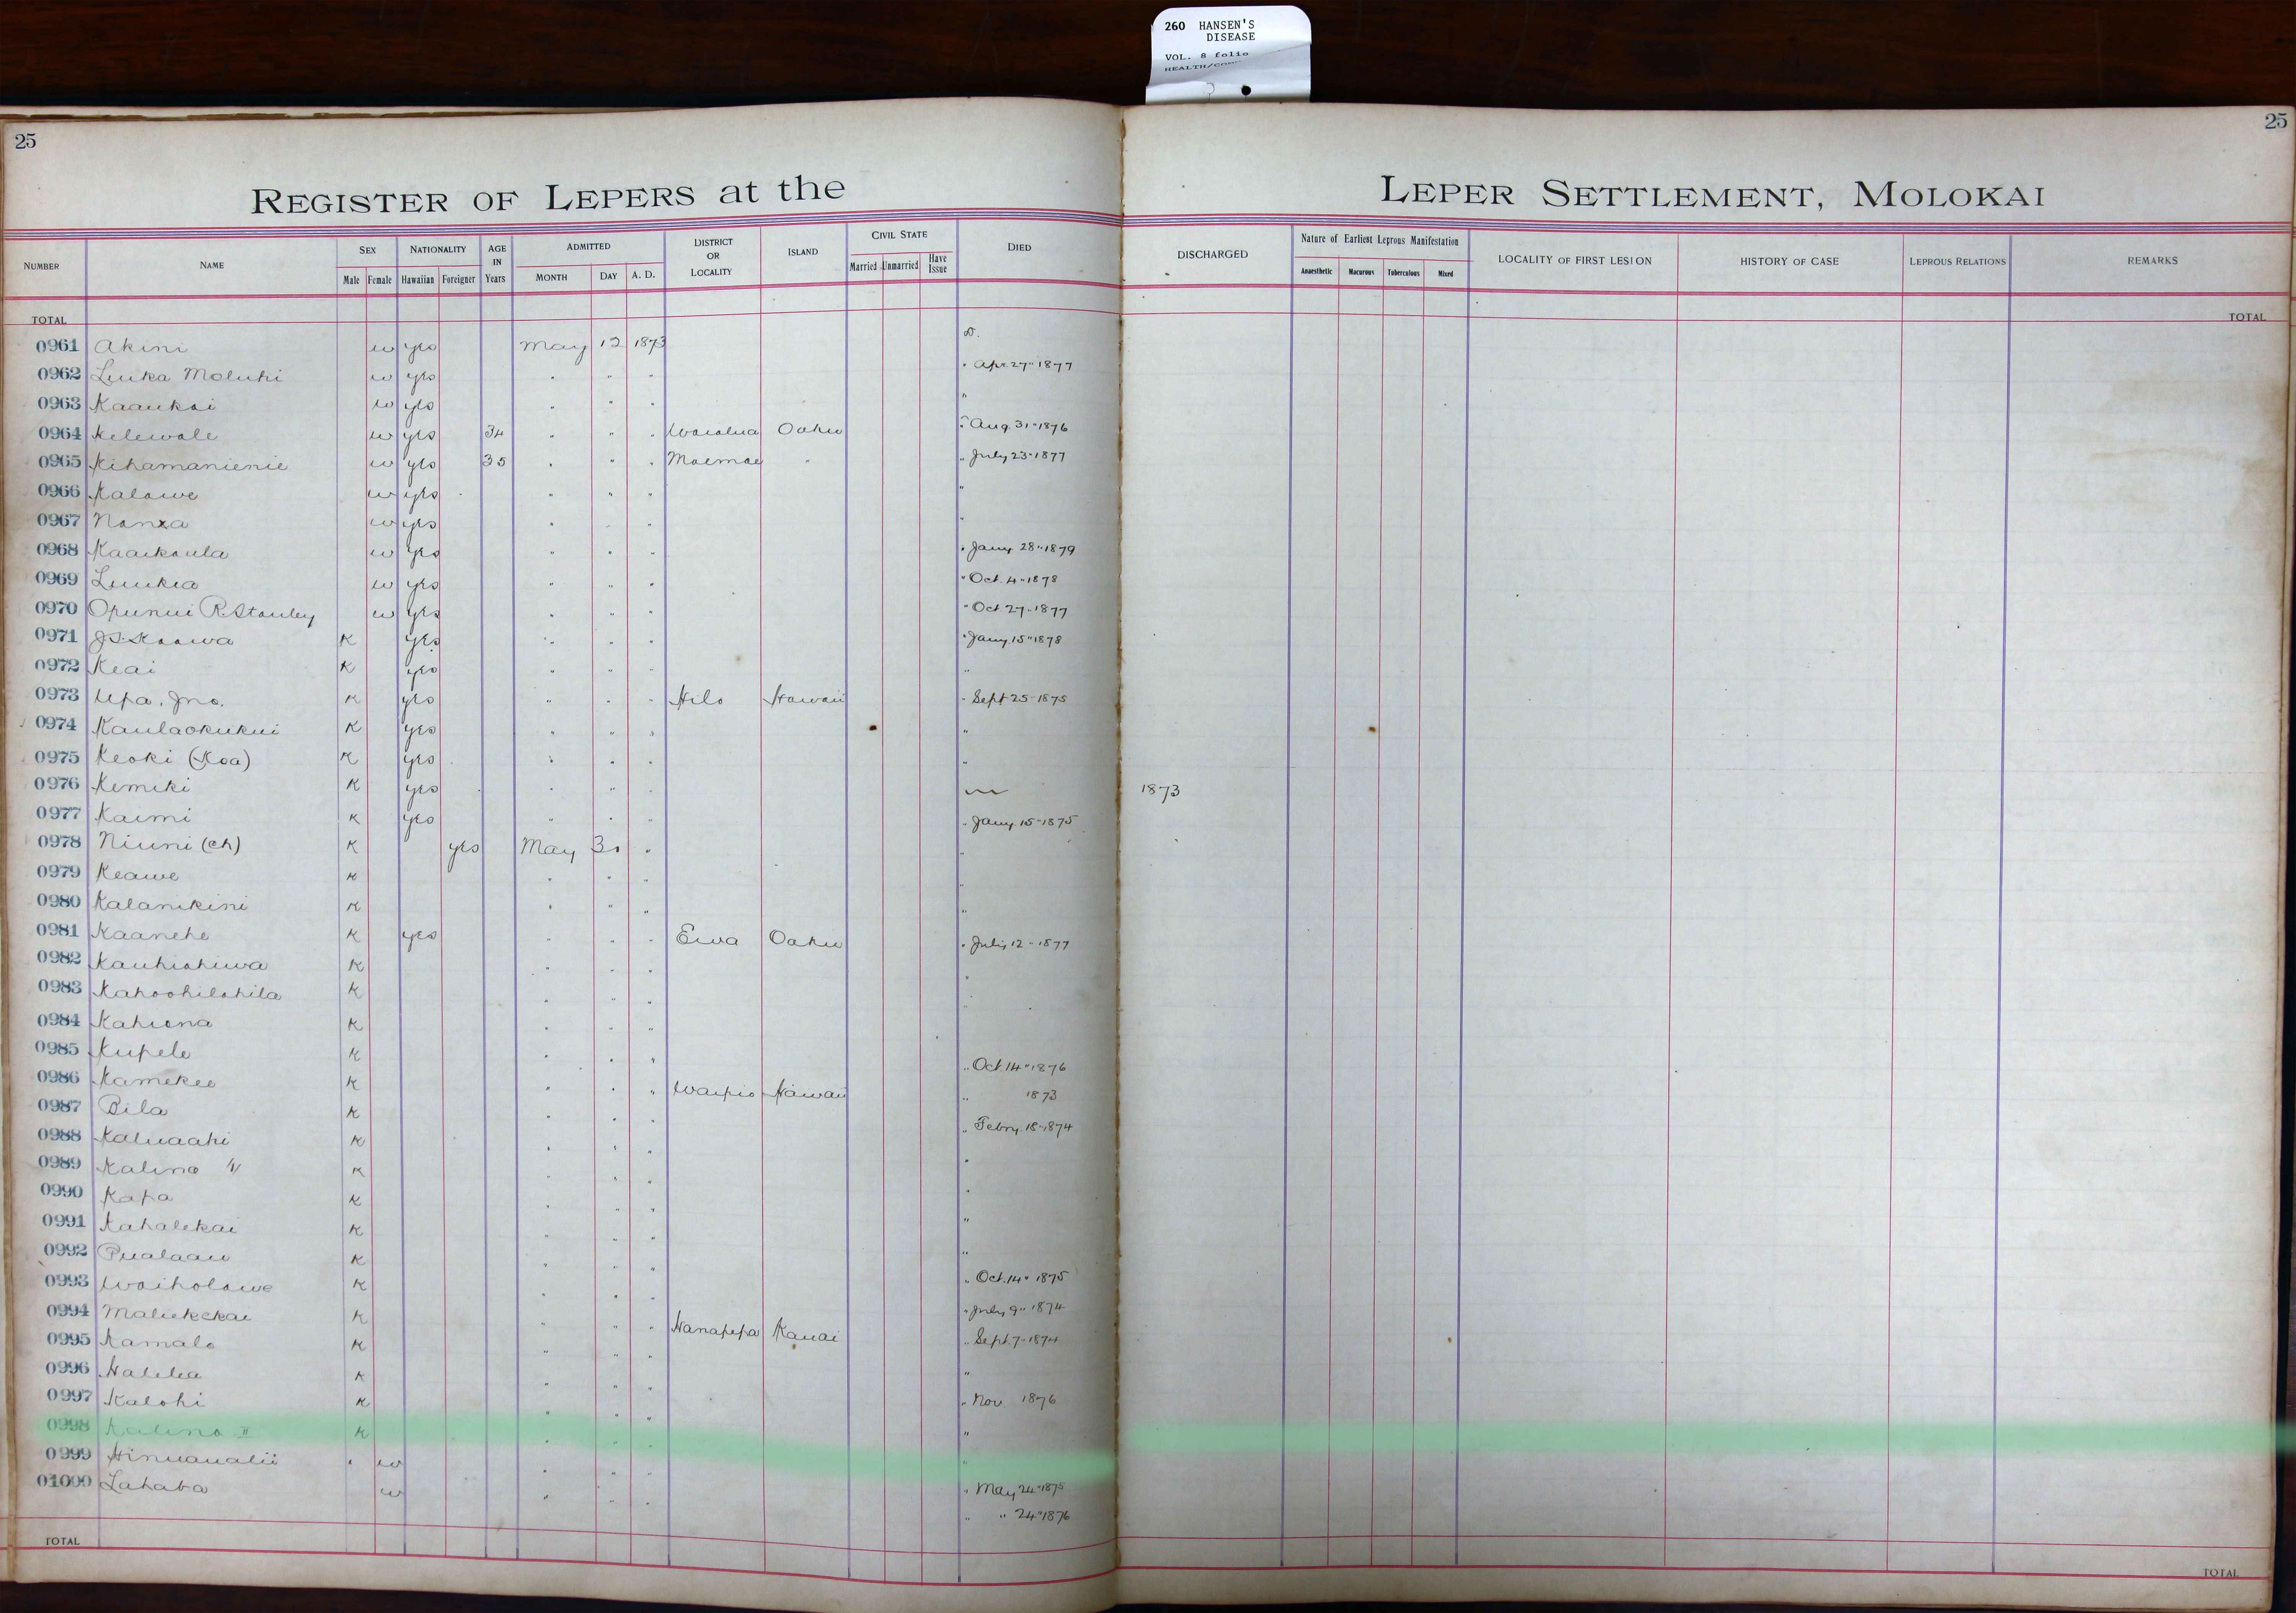 260 HANSEN'S
DISEASE
VOL. 8 folio
25
25
REGISTER OF LEPERS at the LEPER SETTLEMENT, MOLOKAI
NUMBER NAME SEX Male Female NATIONALITY Hawaiian Foreigner AGE IN Years ADMITTED MONTH DAY A. D. DISTRICT OR LOCALITY ISLAND CIVIL STATE Married Unmarried Have Issue DIED DISCHARGED Nature of Earliest Leprous Manifestation Anaesthetic Macurous Tuberculous Mixed LOCALITY OF FIRST LESION HISTORY OF CASE LEPROUS RELATIONS REMARKS
TOTAL TOTAL
0961 Akini w yes May 12 1873 D.
0962 Luika Moluhi w yes " " " " Apr. 27" 1877
0963 Kaaukai w yes " " " "
0964 Kelewale w yes 34 " " " Waialua Oahu " Aug. 31" 1876
0965 Kihamanienie w yes 35 " " " Moemoe " " July 23" 1877
0966 Kalawe w yes " " " "
0967 w yes " " " "
0968 Kaaikaula w yes " " " " Jany. 28" 1879
0969 Luukia w yes " " " " Oct. 4" 1878
0970 Opunui R. Stanley w yes " " " " Oct 27" 1877
0971 K yes " " " " Jany. 15" 1878
0972 Keai K yes " " " "
0973 Upa. Jno. K yes " " " Hilo Hawaii " Sept 25" 1875
0974 Kaulaokukui K yes " " " "
0975 Keoki (Koa) K yes " " " "
0976 Kemiki K yes " " " 1873
0977 Kaimi K yes " " " " Jany. 15" 1875
0978 Niuni (ch) K yes May 30 " "
0979 Keawe K " " " "
0980 Kalanikini K " " " "
0981 Kaanehe K yes " " " Ewa Oahu " July 12" 1877
0982 Kauhiohiwa K " " " "
0983 Kahoohilohila K " " " "
0984 Kahiona K " " "
0985 Kupele K " " " " Oct. 14" 1876
0986 Kamekeo K " " " Waipio Hawaii " 1873
0987 Bila K " " " " Febry. 18" 1874
0988 Kaluaahi K " " " "
0989 Kalino K " " " "
0990 Kapa K " " " "
0991 Kahalekai K " " " "
0992 Pualaau K " " " " Oct. 14" 1875
0993 Waiholowe K " " " " July 9" 1874
0994 Maliekekai K " " " Hanapepa Kauai " Sept. 7" 1874
0995 Kamalo K " " " "
0996 Halelea K " " " " Nov. 1876
0997 Kalohi K " " " "
0998 Kalino II K " " " "
0999 Hinuaualii w " " " " May 24" 1875
01000 Lahaba w " " " " " 24" 1876
TOTAL TOTAL